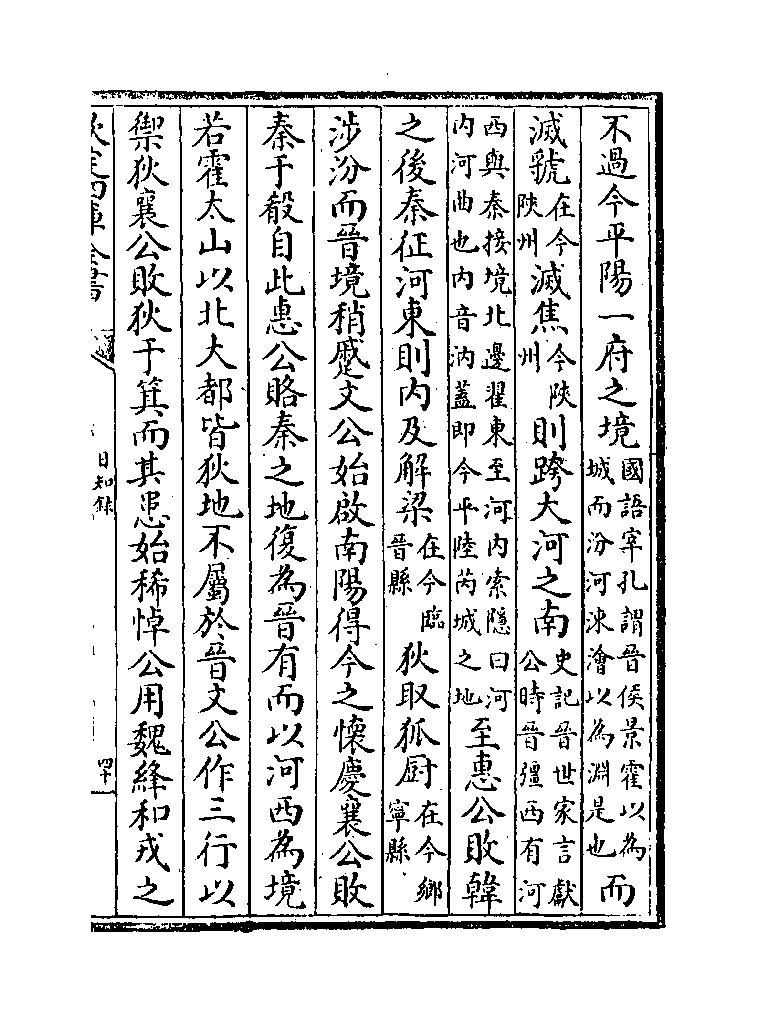 不過今平陽一府之境國語宰孔謂晉侯景霍以為城而汾河涑澮以為淵是也而
滅虢在今陜州滅焦今陜州則跨大河之南史記晉世家言獻公時晉彊西有河
西與秦接境北邊翟東至河内索隱曰河内河曲也内音汭蓋即今平陸芮城之地至惠公敗韓
之後秦征河東則内及解梁在今臨晉縣狄取狐厨在今鄉寧縣
涉汾而晉境稍蹙文公始啟南陽得今之懷慶襄公敗
秦于殽自此惠公賂秦之地復為晉有而以河西為境
若霍太山以北大都皆狄地不屬於晉文公作三行以
禦狄襄公敗狄于箕而其患始稀悼公用魏絳和戎之
欽定四庫全書
日知錄
四十